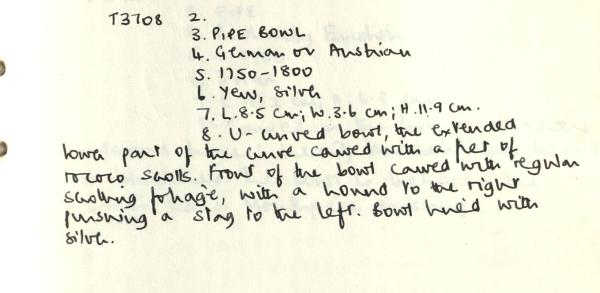 T3708 2.
3. PIPE BOWL
4. German or Austrian
5. 1750-1800
6. Yew, silver
7. L.8.5 cm; W.3.6 cm; H.11.9 cm.
8. U-curved bowl, the extended
lower part of the curve carved with a pair of
rococo scrolls. Front of the bowl carved with regular
scrolling foliage, with a hound to the right
pursuing a stag to the left. Bowl lined with
silver.